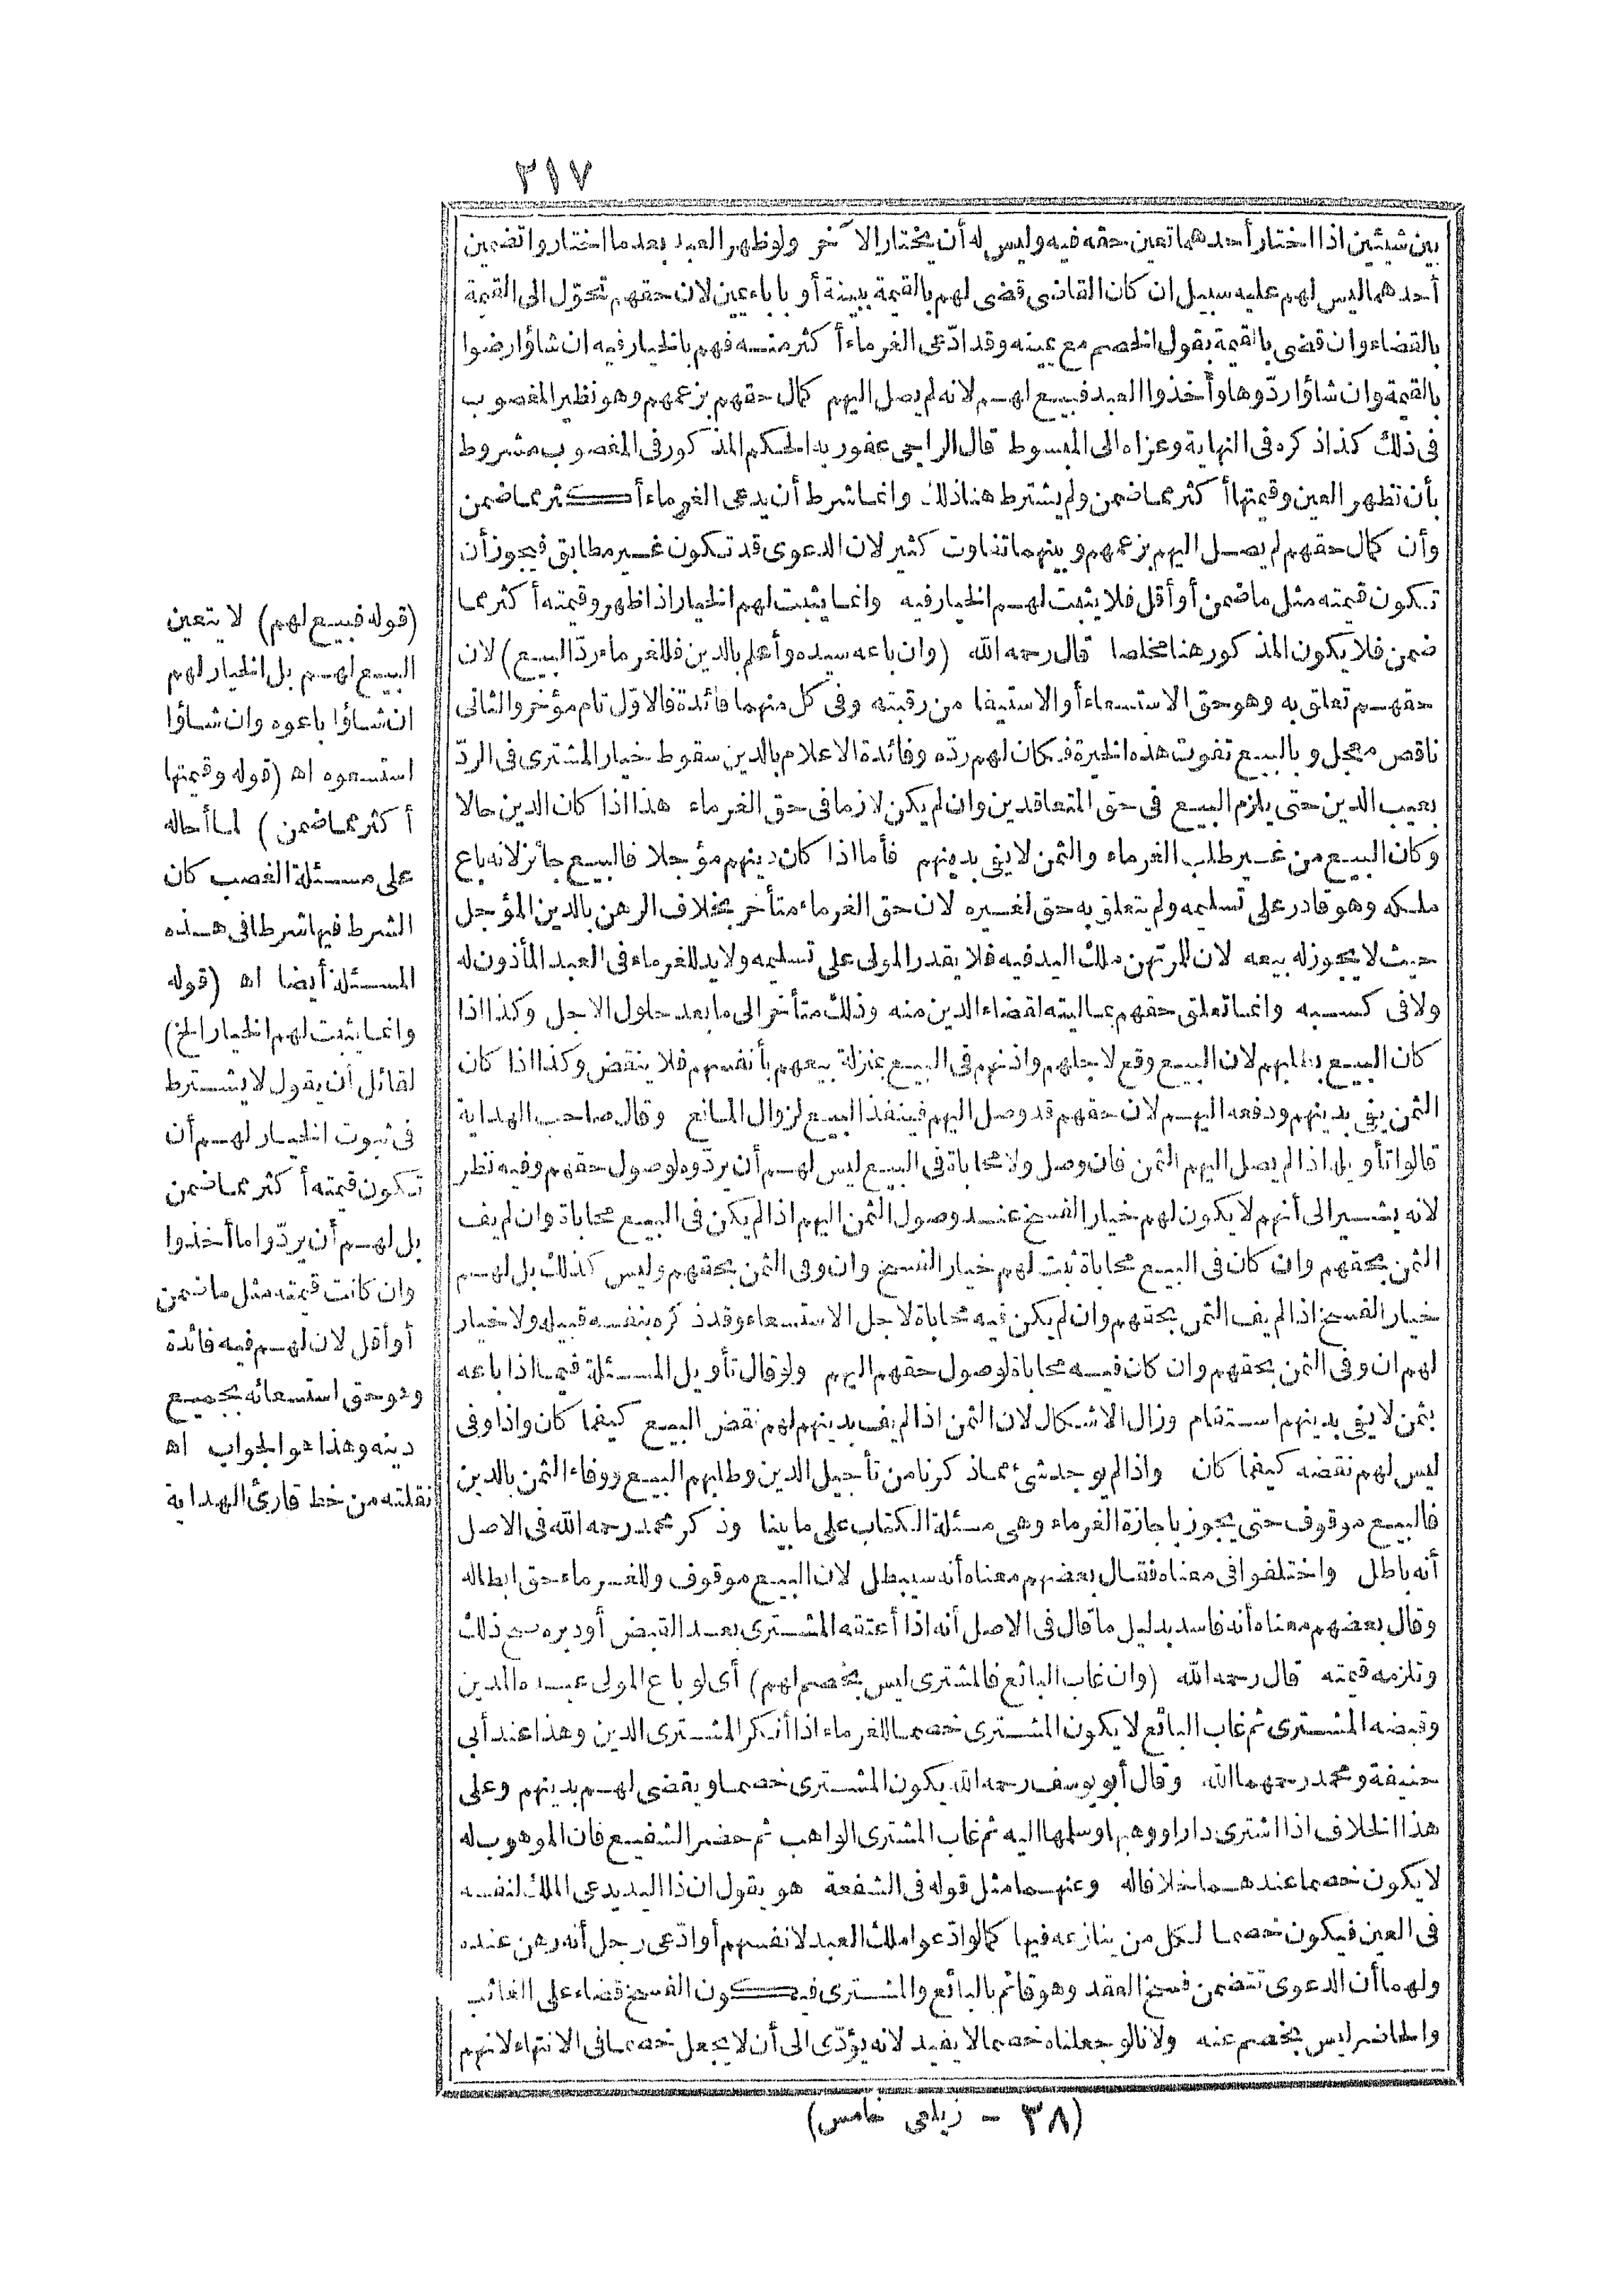 ٢١٧
بين شيئين اذا اختار أحدهما تعين حقه فيه وليس له أن يختار الآخر ولو ظهر العبد بعد ما اختاروا تضمين
أحدهما ليس لهم عليه سبيل ان كان القاضي قضى لهم بالقيمة ببينة أو باباء يمين لان حقهم تحوّل الى القيمة
بالقضاء وان قضى بالقيمة بقول الخصم مع يمينه وقد ادّعى الغرماء أكثر منه فهم بالخيار فيه ان شاؤا رضوا
بالقيمة وان شاؤا ردّوها وأخذوا العبد فبيع لهم لانه لم يصل اليهم كمال حقهم بزعمهم وهو نظير المغصوب
في ذلك كذا ذكره في النهاية وعزاه الى المبسوط قال الراجي عفو ربه الحكم المذكور في المغصوب مشروط
بأن تظهر العين وقيمتها أكثر مما ضمن ولم يشترط هنا ذلك وانما شرط أن يدعى الغرماء أكثر مما ضمن
وأن كمال حقهم لم يصل اليهم بزعمهم وبينهما تفاوت كثير لان الدعوى قد تكون غير مطابق فيجوز أن
تكون قيمته مثل ما ضمن أو أقل فلا يثبت لهم الخيار فيه وانما يثبت لهم الخيار اذا ظهر وقيمته أكثر مما
ضمن فلا يكون المذكور هنا مخلصا قال رحمه الله (وان باعه سيده وأعلم بالدين فللغرماء ردّ البيع) لان
حقهم تعلق به وهو حق الاستسعاء أو الاستيفا من رقبته وفي كل منهما فائدة فالاوّل تام مؤخر والثاني
ناقص معجل وبالبيع تفوت هذه الخيرة فكان لهم ردّه وفائدة الاعلام بالدين سقوط خيار المشترى في الردّ
بعيب الدين حتى يلزم البيع في حق المتعاقدين وان لم يكن لازما في حق الغرماء هذا اذا كان الدين حالا
وكان البيع من غير طلب الغرماء والثمن لا يفي بدينهم فأما اذا كان دينهم مؤجلا فالبيع جائز لانه باع
ملكه وهو قادر على تسليمه ولم يتعلق به حق لغيره لان حق الغرماء متأخر بخلاف الرهن بالدين المؤجل
حيث لا يجوز له بيعه لان للمرتهن ملك اليد فيه فلا يقدر المولى على تسليمه ولا يد للغرماء في العبد المأذون له
ولا في كسبه وانما تعلق حقهم بماليته لقضاء الدين منه وذلك متأخر الى ما بعد حلول الاجل وكذا اذا
كان البيع بطلبهم لان البيع وقع لاجلهم واذنهم في البيع بمنزلة بيعهم بأنفسهم فلا ينقض وكذا اذا كان
الثمن يفي بدينهم ودفعه اليهم لان حقهم قد وصل اليهم فينفذ البيع لزوال المانع وقال صاحب الهداية
قالوا تأويله اذا لم يصل اليهم الثمن فان وصل ولا محاباة في البيع ليس لهم أن يردّوه لوصول حقهم وفيه نظر
لانه يشير الى أنهم لا يكون لهم خيار الفسخ عند وصول الثمن اليهم اذا لم يكن في البيع محاباة وان لم يف
الثمن بحقهم وان كان في البيع محاباة ثبت لهم خيار الفسخ وان وفى الثمن بحقهم وليس كذلك بل لهم
خيار الفسخ اذا لم يف الثمن بحقهم وان لم يكن فيه محاباة لاجل الاستسعاء وقد ذكره بنفسه قبيله ولا خيار
لهم ان وفى الثمن بحقهم وان كان فيه محاباة لوصول حقهم اليهم ولو قال تأويل المسئلة فيما اذا باعه
بثمن لا يفي بدينهم استقام وزال الاشكال لان الثمن اذا لم يف بدينهم لهم نقض البيع كيفما كان واذا وفى
ليس لهم نقضه كيفما كان واذا لم يوجد شئ مما ذكرنا من تأجيل الدين وطلبهم البيع ووفاء الثمن بالدين
فالبيع موقوف حتى يجوز باجازة الغرماء وهي مسئلة الكتاب على ما بينا وذكر محمد رحمه الله في الاصل
أنه باطل واختلفوا في معناه فقال بعضهم معناه أنه سيبطل لان البيع موقوف وللغرماء حق ابطاله
وقال بعضهم معناه أنه فاسد بدليل ما قال في الاصل أنه اذا أعتقه المشترى بعد القبض أو دبره صح ذلك
وتلزمه قيمته قال رحمه الله (وان غاب البائع فالمشترى ليس بخصم لهم) أي لو باع المولى عبده المدين
وقبضه المشترى ثم غاب البائع لا يكون المشترى خصما للغرماء اذا أنكر المشترى الدين وهذا عند أبي
حنيفة ومحمد رحمهما الله وقال أبو يوسف رحمه الله يكون المشترى خصما ويقضى لهم بدينهم وعلى
هذا الخلاف اذا اشترى دارا ووهبها وسلمها اليه ثم غاب المشترى الواهب ثم حضر الشفيع فان الموهوب له
لا يكون خصما عندهما خلافا له وعنهما مثل قوله في الشفعة هو يقول ان ذا اليد يدعى الملك لنفسه
في العين فيكون خصما لكل من ينازعه فيها كما لو ادّعوا ملك العبد لانفسهم أو ادّعى رجل أنه رهن عنده
ولهما أن الدعوى تتضمن فسخ العقد وهو قائم بالبائع والمشترى فيكون الفسخ قضاء على الغائب
والحاضر ليس بخصم عنه ولانا لو جعلناه خصما لا يفيد لانه يؤدّى الى أن لا يجعل خصما في الانتهاء لانهم
(قوله فبيع لهم) لا يتعين
البيع لهم بل الخيار لهم
ان شاؤا باعوه وان شاؤا
استسعوه اه (قوله وقيمتها
أكثر مما ضمن) لما أحاله
على مسئلة الغصب كان
الشرط فيها شرطا في هذه
المسئلة أيضا اه (قوله
وانما يثبت لهم الخيار الخ)
لقائل أن يقول لا يشترط
في ثبوت الخيار لهم أن
تكون قيمته أكثر مما ضمن
بل لهم أن يردّوا ما أخذوا
وان كانت قيمته مثل ما ضمن
أو أقل لان لهم فيه فائدة
وهو حق استسعائه بجميع
دينه وهذا هو الجواب اه
نقلته من خط قارئ الهداية
(٣٨ - زيلعي خامس)